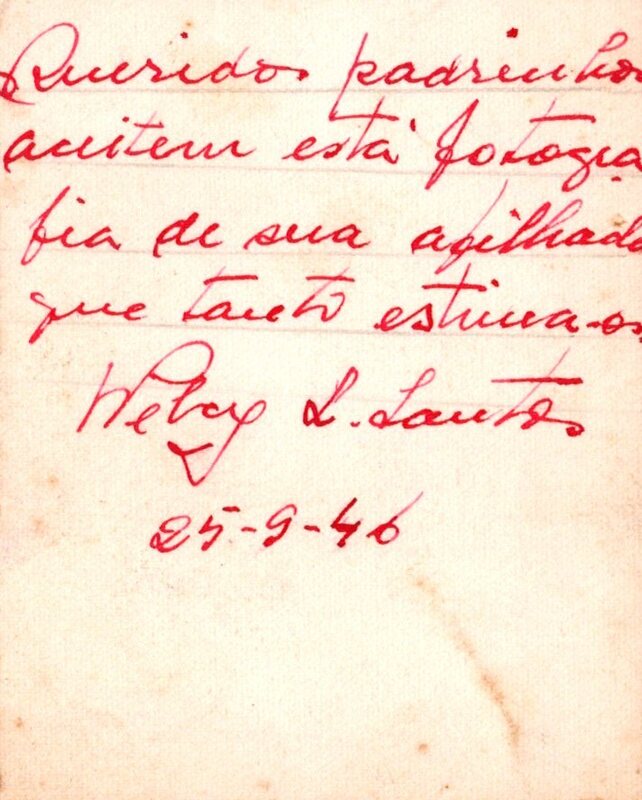 Queridos padrinhos
aceitem está fotogra
fia de sua afilhada
que tanto estima-os
L. Santos
25-9-46